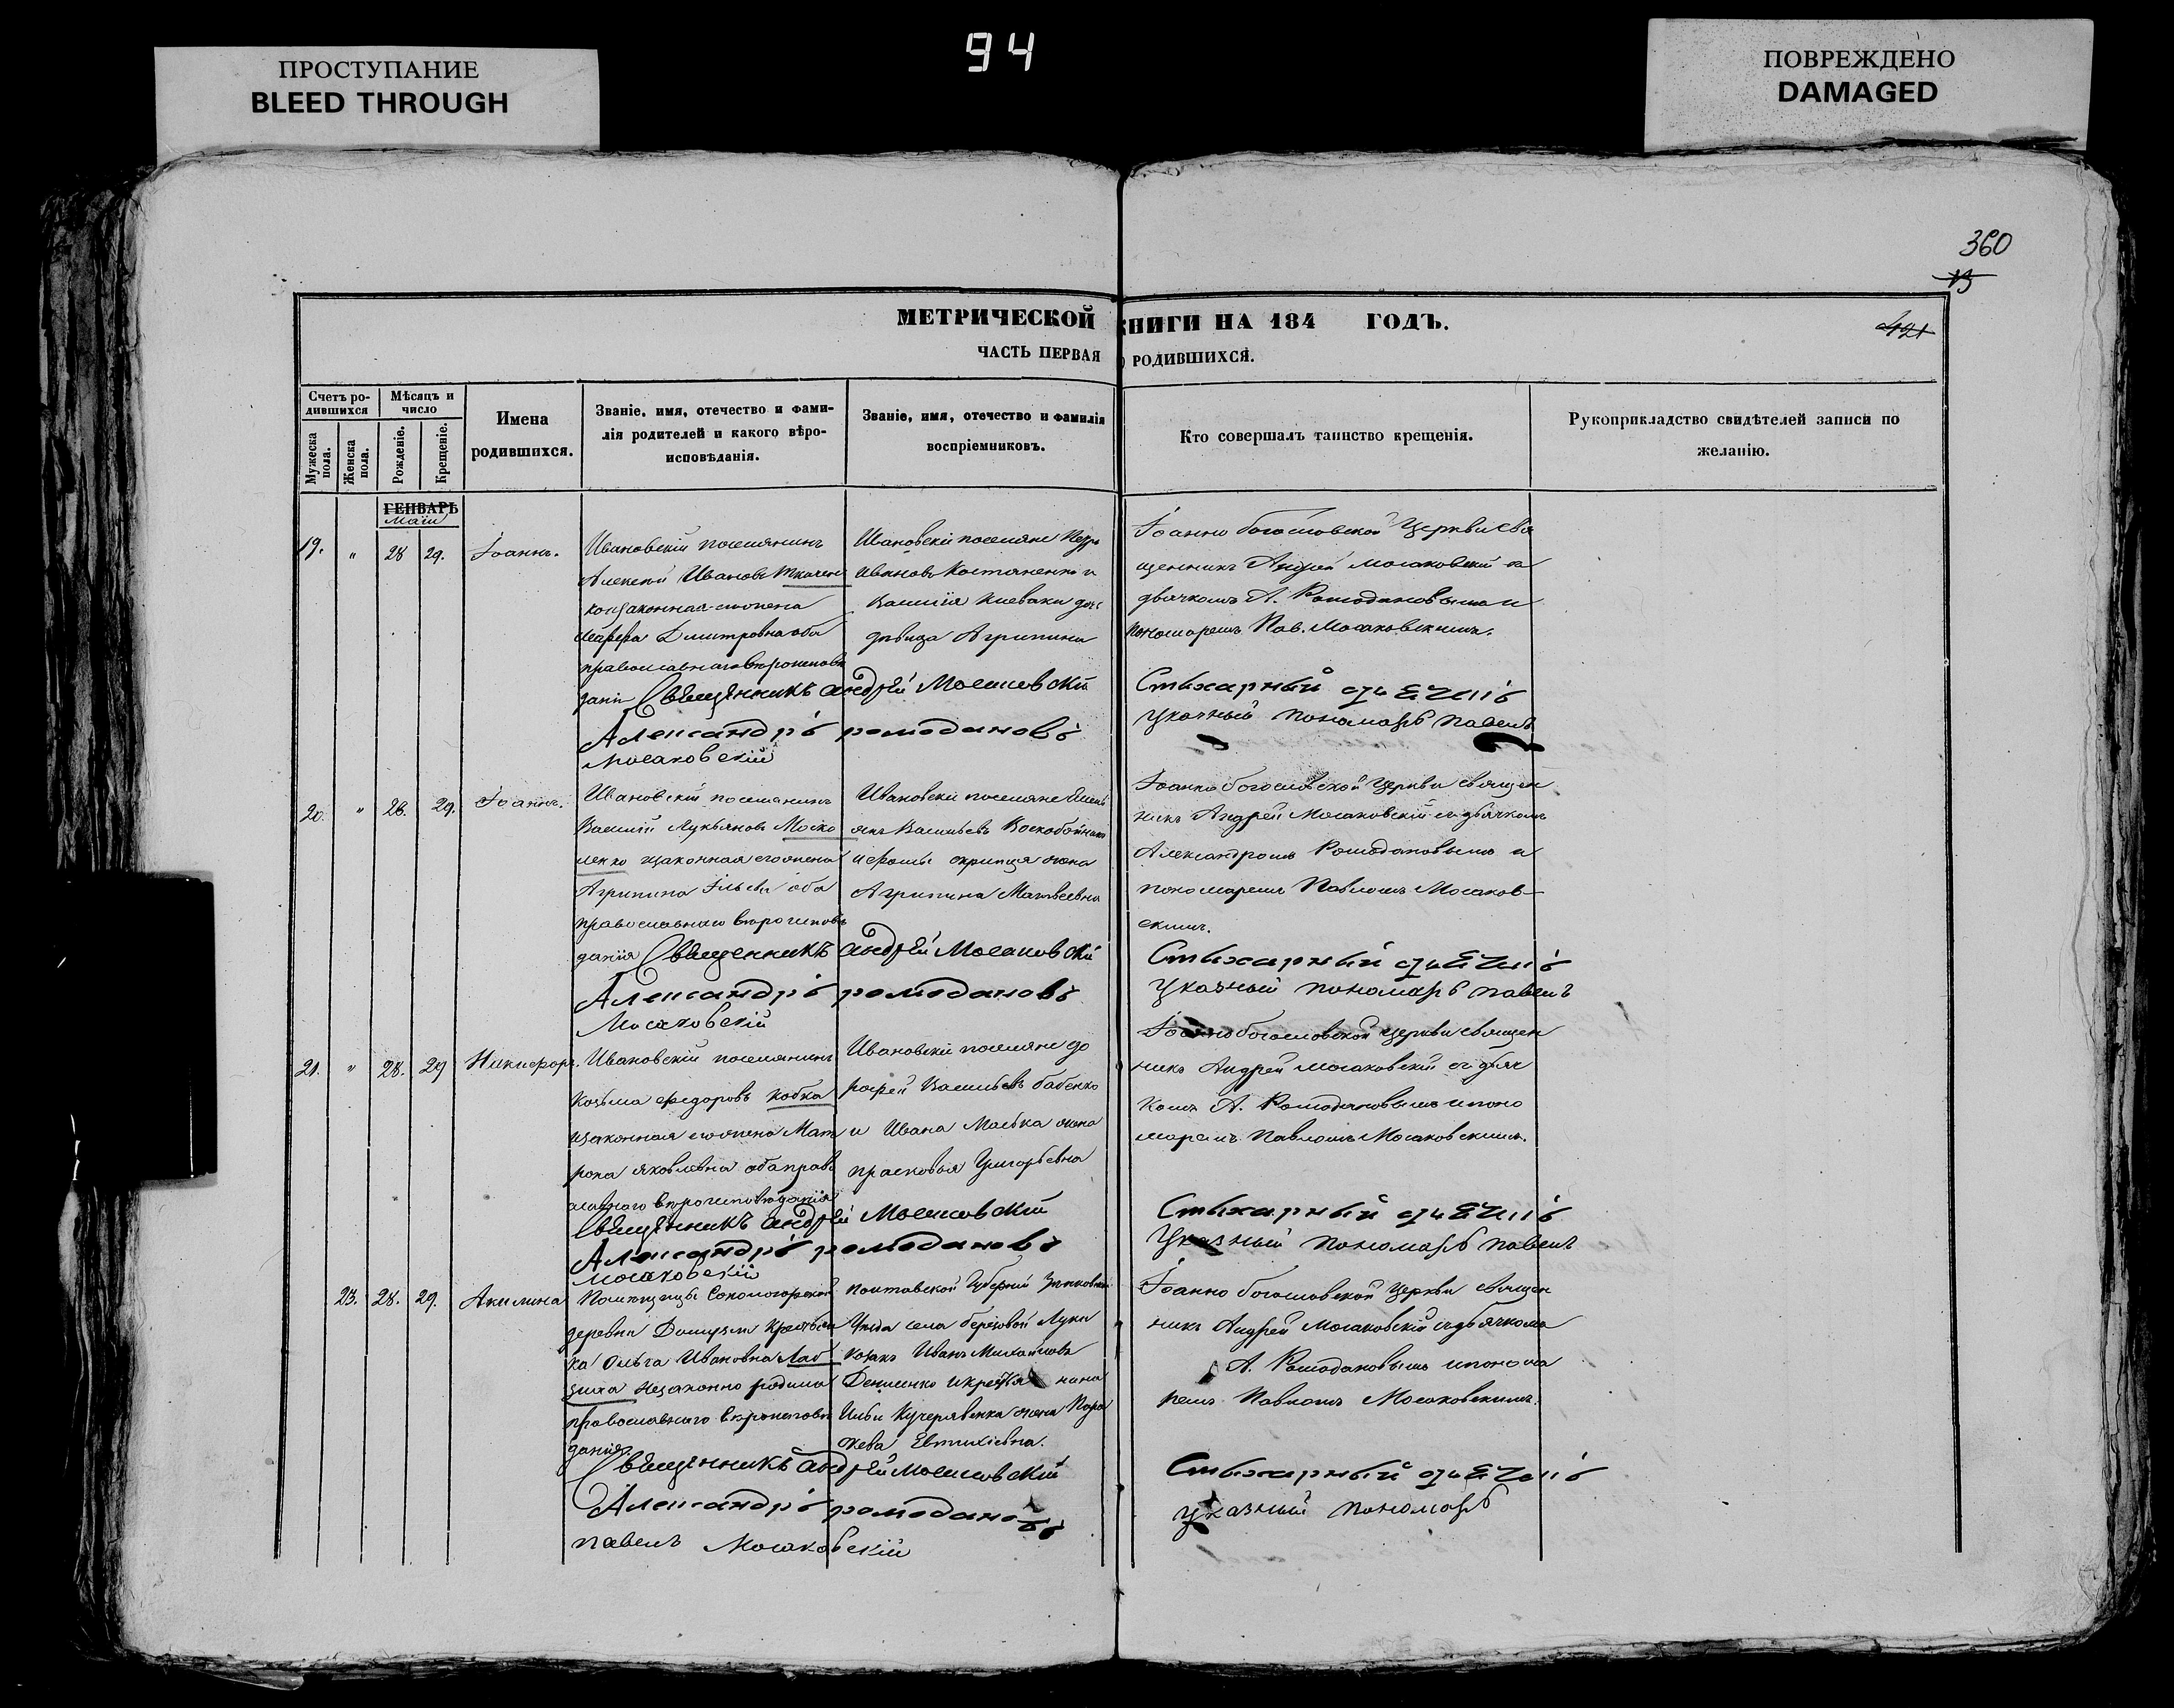 ПРОСТУПАНИЕ
BLEED THROUGH
94
ПОВРЕЖДЕНО
DAMAGED
360
МЕТРИЧЕСКОЙ КНИГИ НА 184 ГОДЪ.
ЧАСТЬ ПЕРВАЯ О РОДИВШИХСЯ.
Счетъ ро-
дившихся
Мѣсяцъ и
число
Мужеска
пола.
Женска
пола.
Рожденіе.
Крещеніе.
Имена
родившихся.
Званіе, имя, отечество и фами-
лія родителей и какого вѣро-
исповѣданія.
Званіе, имя, отечество и фамилія
воспріемниковъ.
Кто совершалъ таинство крещенія.
Рукоприкладство свидѣтелей записи по
желанію.
ГЕНВАРЬ
маія
19. " 28 29. Іоаннъ.
Ивановскій поселянинъ
Алексѣй Ивановъ Ткачен
ко изаконная его жена
Дмитровна оба
православнаго вѣроисповѣ
данія Священникъ Андрей Мосаковскій
Александръ Ромодановъ
Мосаковскій
Ивановскіе поселяне Петръ
Ивановъ Костяненко и
Василія
дѣвица Агрипина
Іоанно Богословской Церкви свя
щенникъ Андрей Мосаковскій съ
дьячкомъ А. Ромодановымъ и
пономаремъ Пав. Мосаковскимъ.
Стихарный дьячекъ
Указный пономарь Павелъ
20. " 26. 29. Іоаннъ.
Ивановскій поселянинъ
Василій Лукьяновъ Моско
ленко изаконная его жена
Агрипина Ільева оба
православнаго вѣроисповѣ
данія Священникъ Андрей Мосаковскій
Александръ Ромодановъ
Мосаковскій
Ивановскіе поселяне
Васильевъ Воскобойник
и Фомы жена
Агрипина Матвеевна
Іоанно Богословской Церкви священ
никъ Андрей Мосаковскій съ дьячкомъ
Александромъ Ромодановымъ и
пономаремъ Павломъ Мосаков-
скимъ.
Стихарный дьячекъ
Указный пономарь Павелъ
21. " 28. 29 Никифоръ.
Ивановскій поселянинъ
Козьма Федоровъ Кобка
изаконная его жена Мат
рона Яковлевна оба прав
славнаго вѣроисповѣданія
Священникъ Андрей Мосаковскій
Александръ Ромодановъ
Мосаковскій
Ивановскіе поселяне До
рофей Васильевъ Бабенко
и Ивана жена
Прасковья Григорьевна
Іоанно Богословской Церкви священ
никъ Андрей Мосаковскій съ дьяч
комъ А. Ромодановымъ и поно
маремъ Павломъ Мосаковскимъ.
Стихарный дьячекъ
Указный пономарь Павелъ
23. 28. 29. Акилина
деревни Крестьян
ка Ольга Ивановна
незаконно родила
православнаго вѣроисповѣ
данія.
Священникъ Андрей Мосаковскій
Александръ Ромодановъ
Павелъ Мосаковскій
Полтавской Губерніи Зѣньковскаго
Уѣзда села Березовой Луки
Козакъ Иванъ Михайловъ
Денисенко и
Ильи Кучерявенка жена Пара
скева Евтихіевна.
Іоанно Богословской Церкви священ
никъ Андрей Мосаковскій съ дьячкомъ
А. Ромодановымъ и понома
ремъ Павломъ Мосаковскимъ.
Стихарный дьячекъ
Указный пономарь